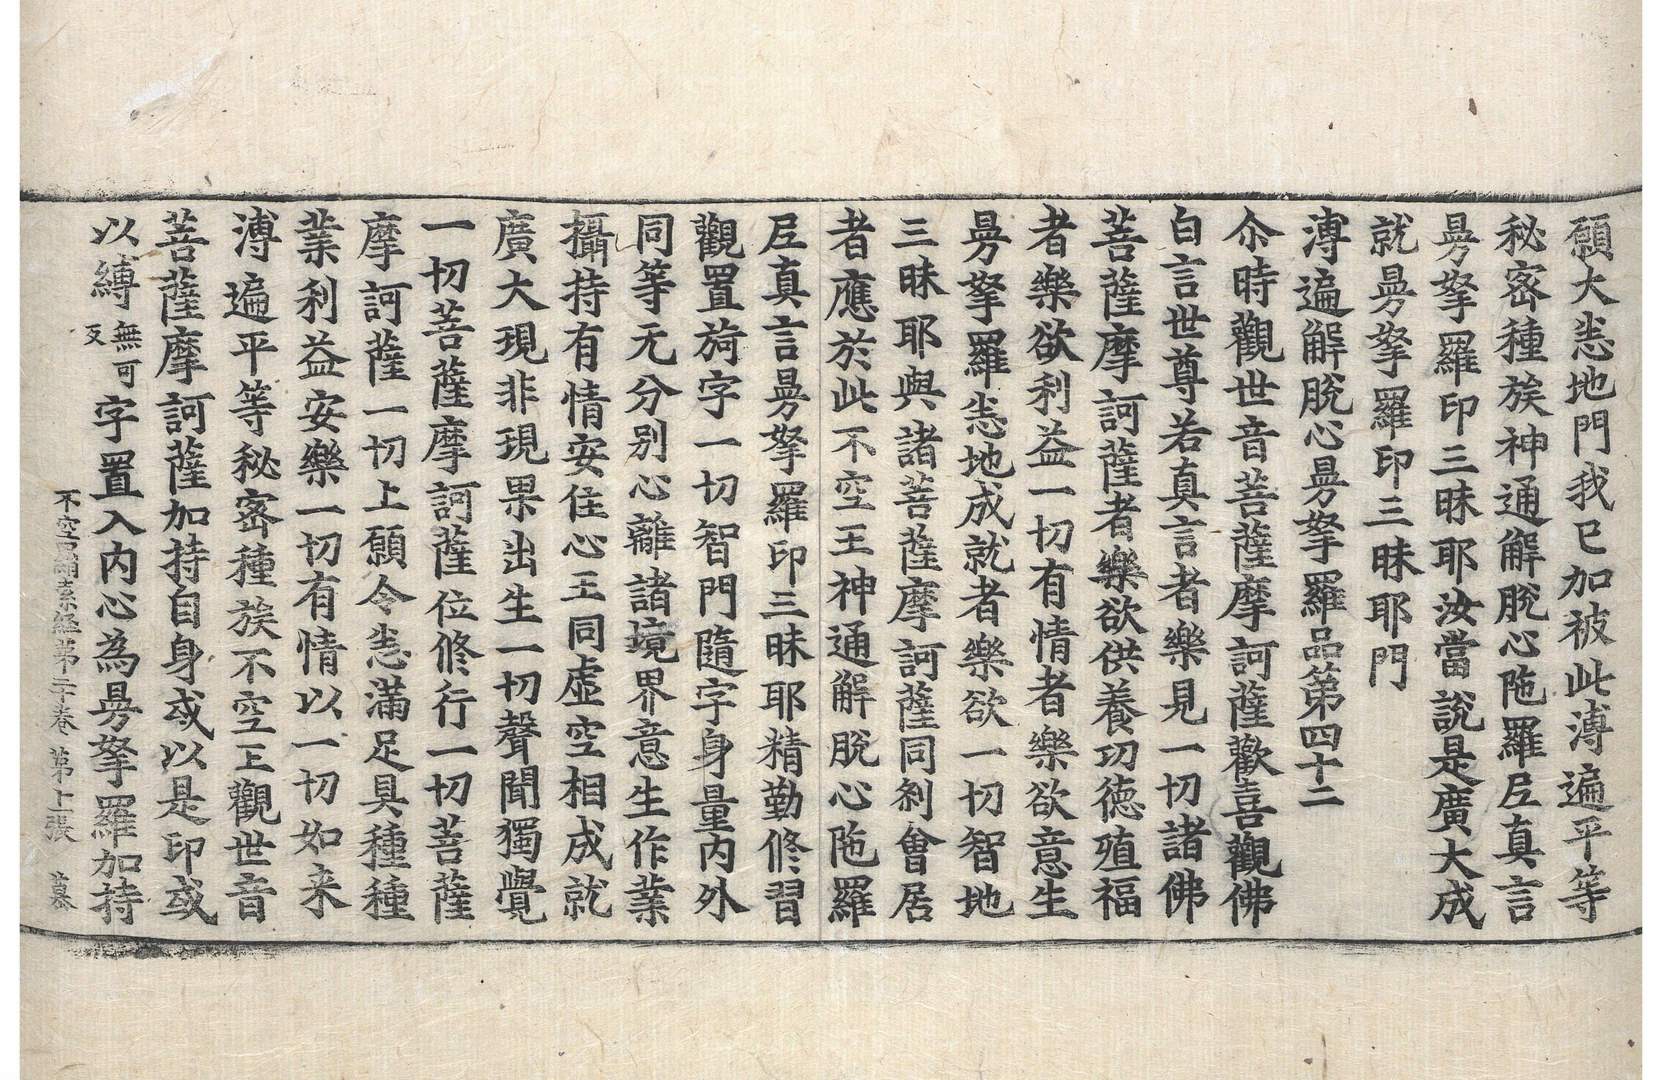 願大悉地門我已加被此溥遍平等
秘密種族神通解脫心陁羅𡰱真言
曼拏羅印三昧耶汝當說是廣大成
就曼拏羅印三昧耶門
溥遍解脫心曼拏羅品第四十二
尒時觀世音菩薩摩訶薩歡喜觀佛
白言世尊若真言者樂見一切諸佛
菩薩摩訶薩者樂欲供養功德殖福
者樂欲利益一切有情者樂欲意生
曼拏羅悉地成就者樂欲一切智地
三昧耶與諸菩薩摩訶薩同剎會居
者應於此不空王神通解脫心陁羅
𡰱真言曼拏羅印三昧耶精勤修習
觀置㫊字一切智門隨字身量內外
同等无分別心離諸境界意生作業
攝持有情安住心王同虛空相成就
廣大現非現果出生一切聲聞獨覺
一切菩薩摩訶薩位修行一切菩薩
摩訶薩一切上願令悉滿足具種種
業利益安樂一切有情以一切如来
溥遍平等秘密種族不空王觀世音
菩薩摩訶薩加持自身或以是印或
以縛無可反字置入內心為曼拏羅加持
不空羂索經第二十卷 第十張 慕